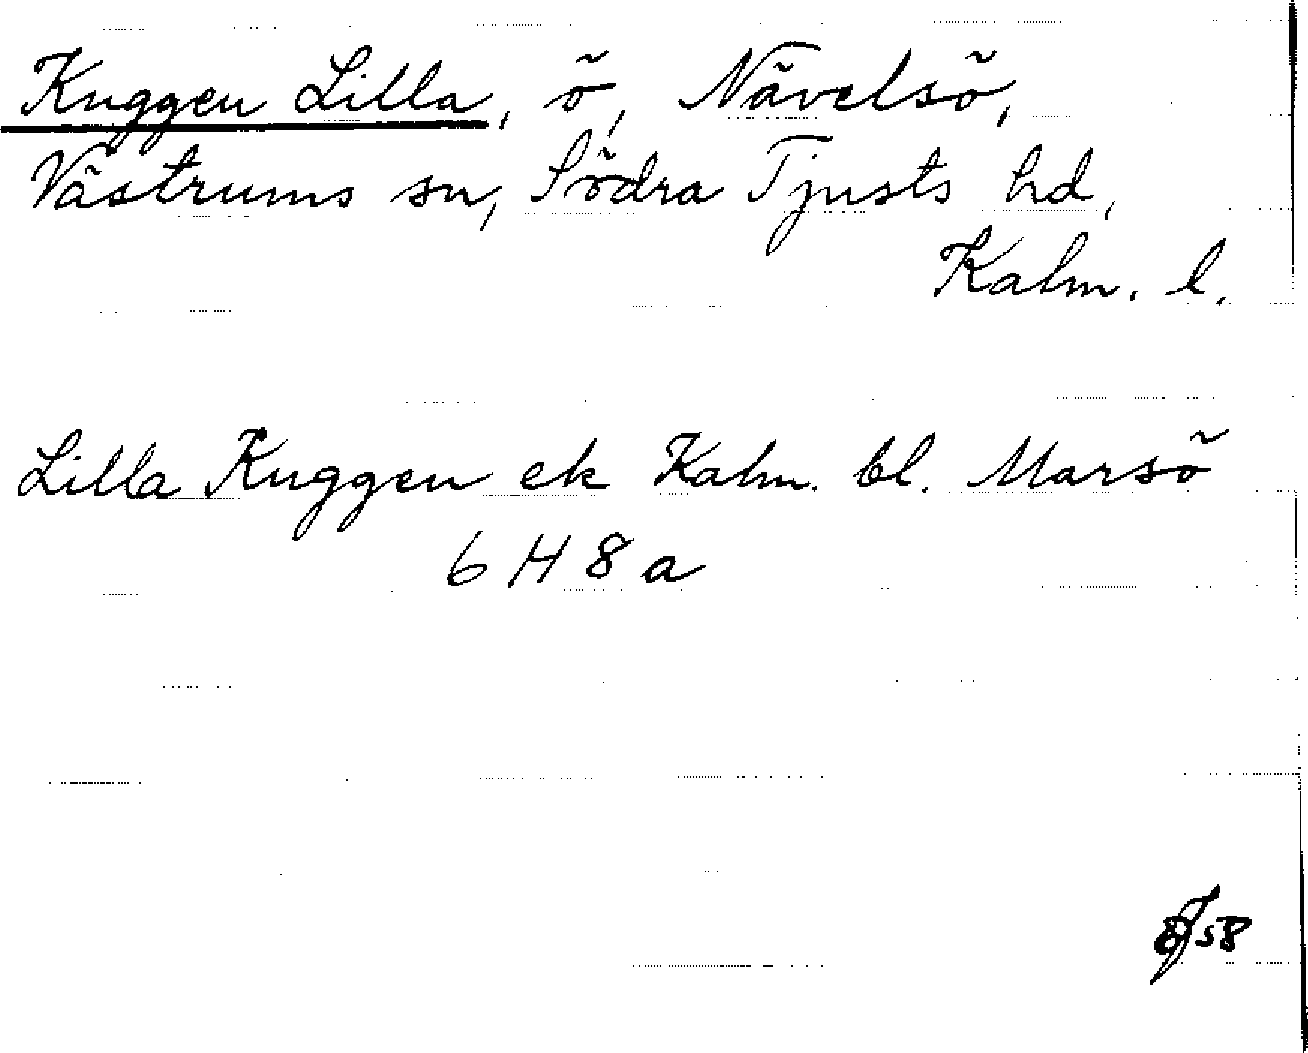 Kuggen Lilla, ö, Nävelsö,
Västrums sn, Södra Tjusts hd,
Kalm. l.
Lilla Kuggen ek Kalm. bl. Marsö
6 H 8 a
58